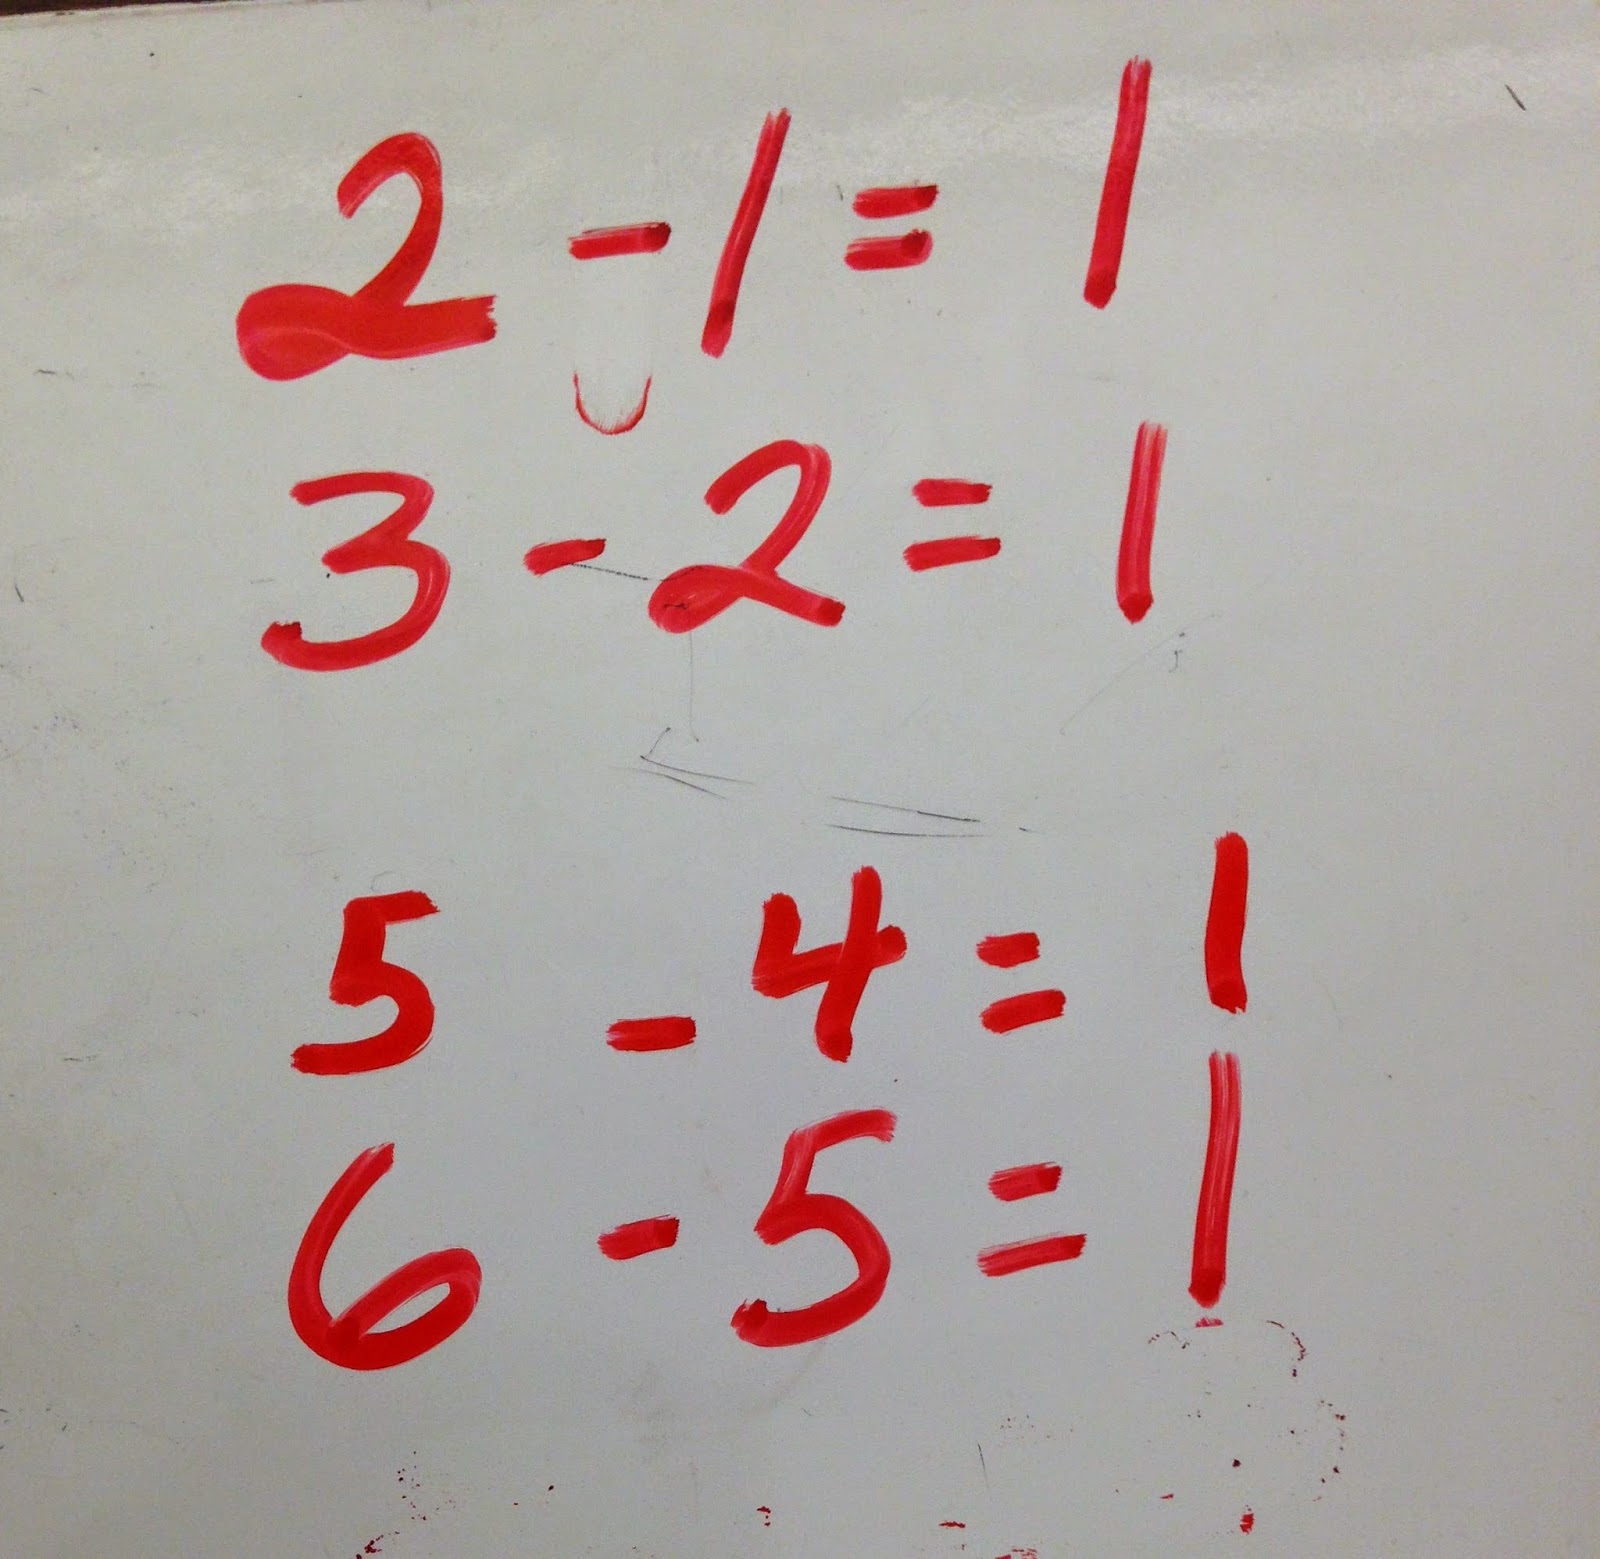 2 - 1 = 1
3 - 2 = 1
5 - 4 = 1
6 - 5 = 1